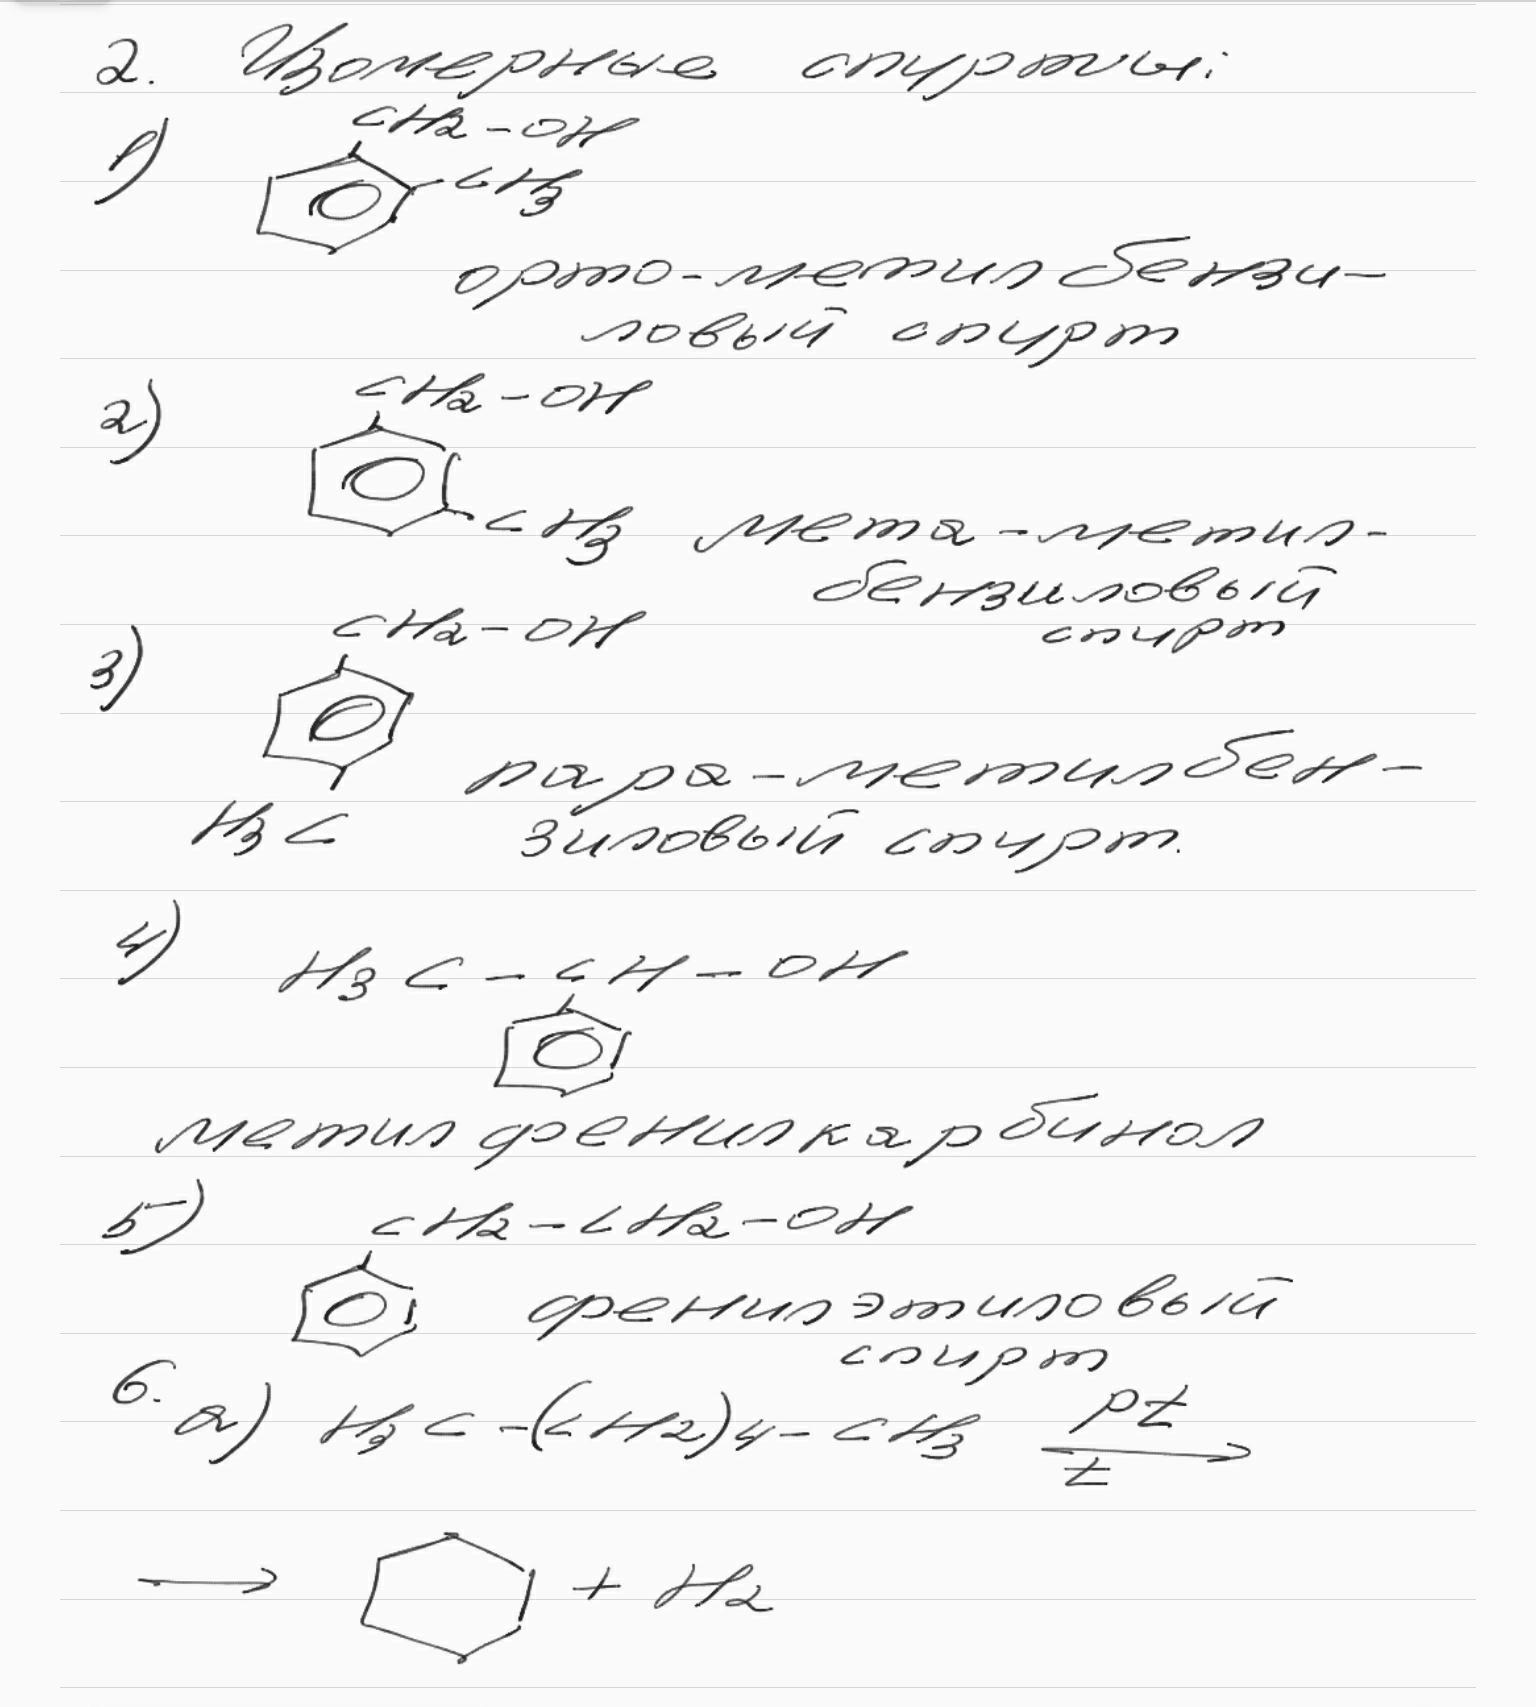 2. Изомерные спирты:
1)
CH2-OH
CH3
орто-метилбензи-
ловый спирт
2)
CH2-OH
CH3 мета-метил-
бензиловый
спирт
3)
CH2-OH
H3C
пара-метилбен-
зиловый спирт.
4)
H3C-CH-OH
метилфенилкарбинол
5)
CH2-CH2-OH
фенилэтиловый
спирт
6.
а) H3C-(CH2)4-CH3 pt
t
→ + H2